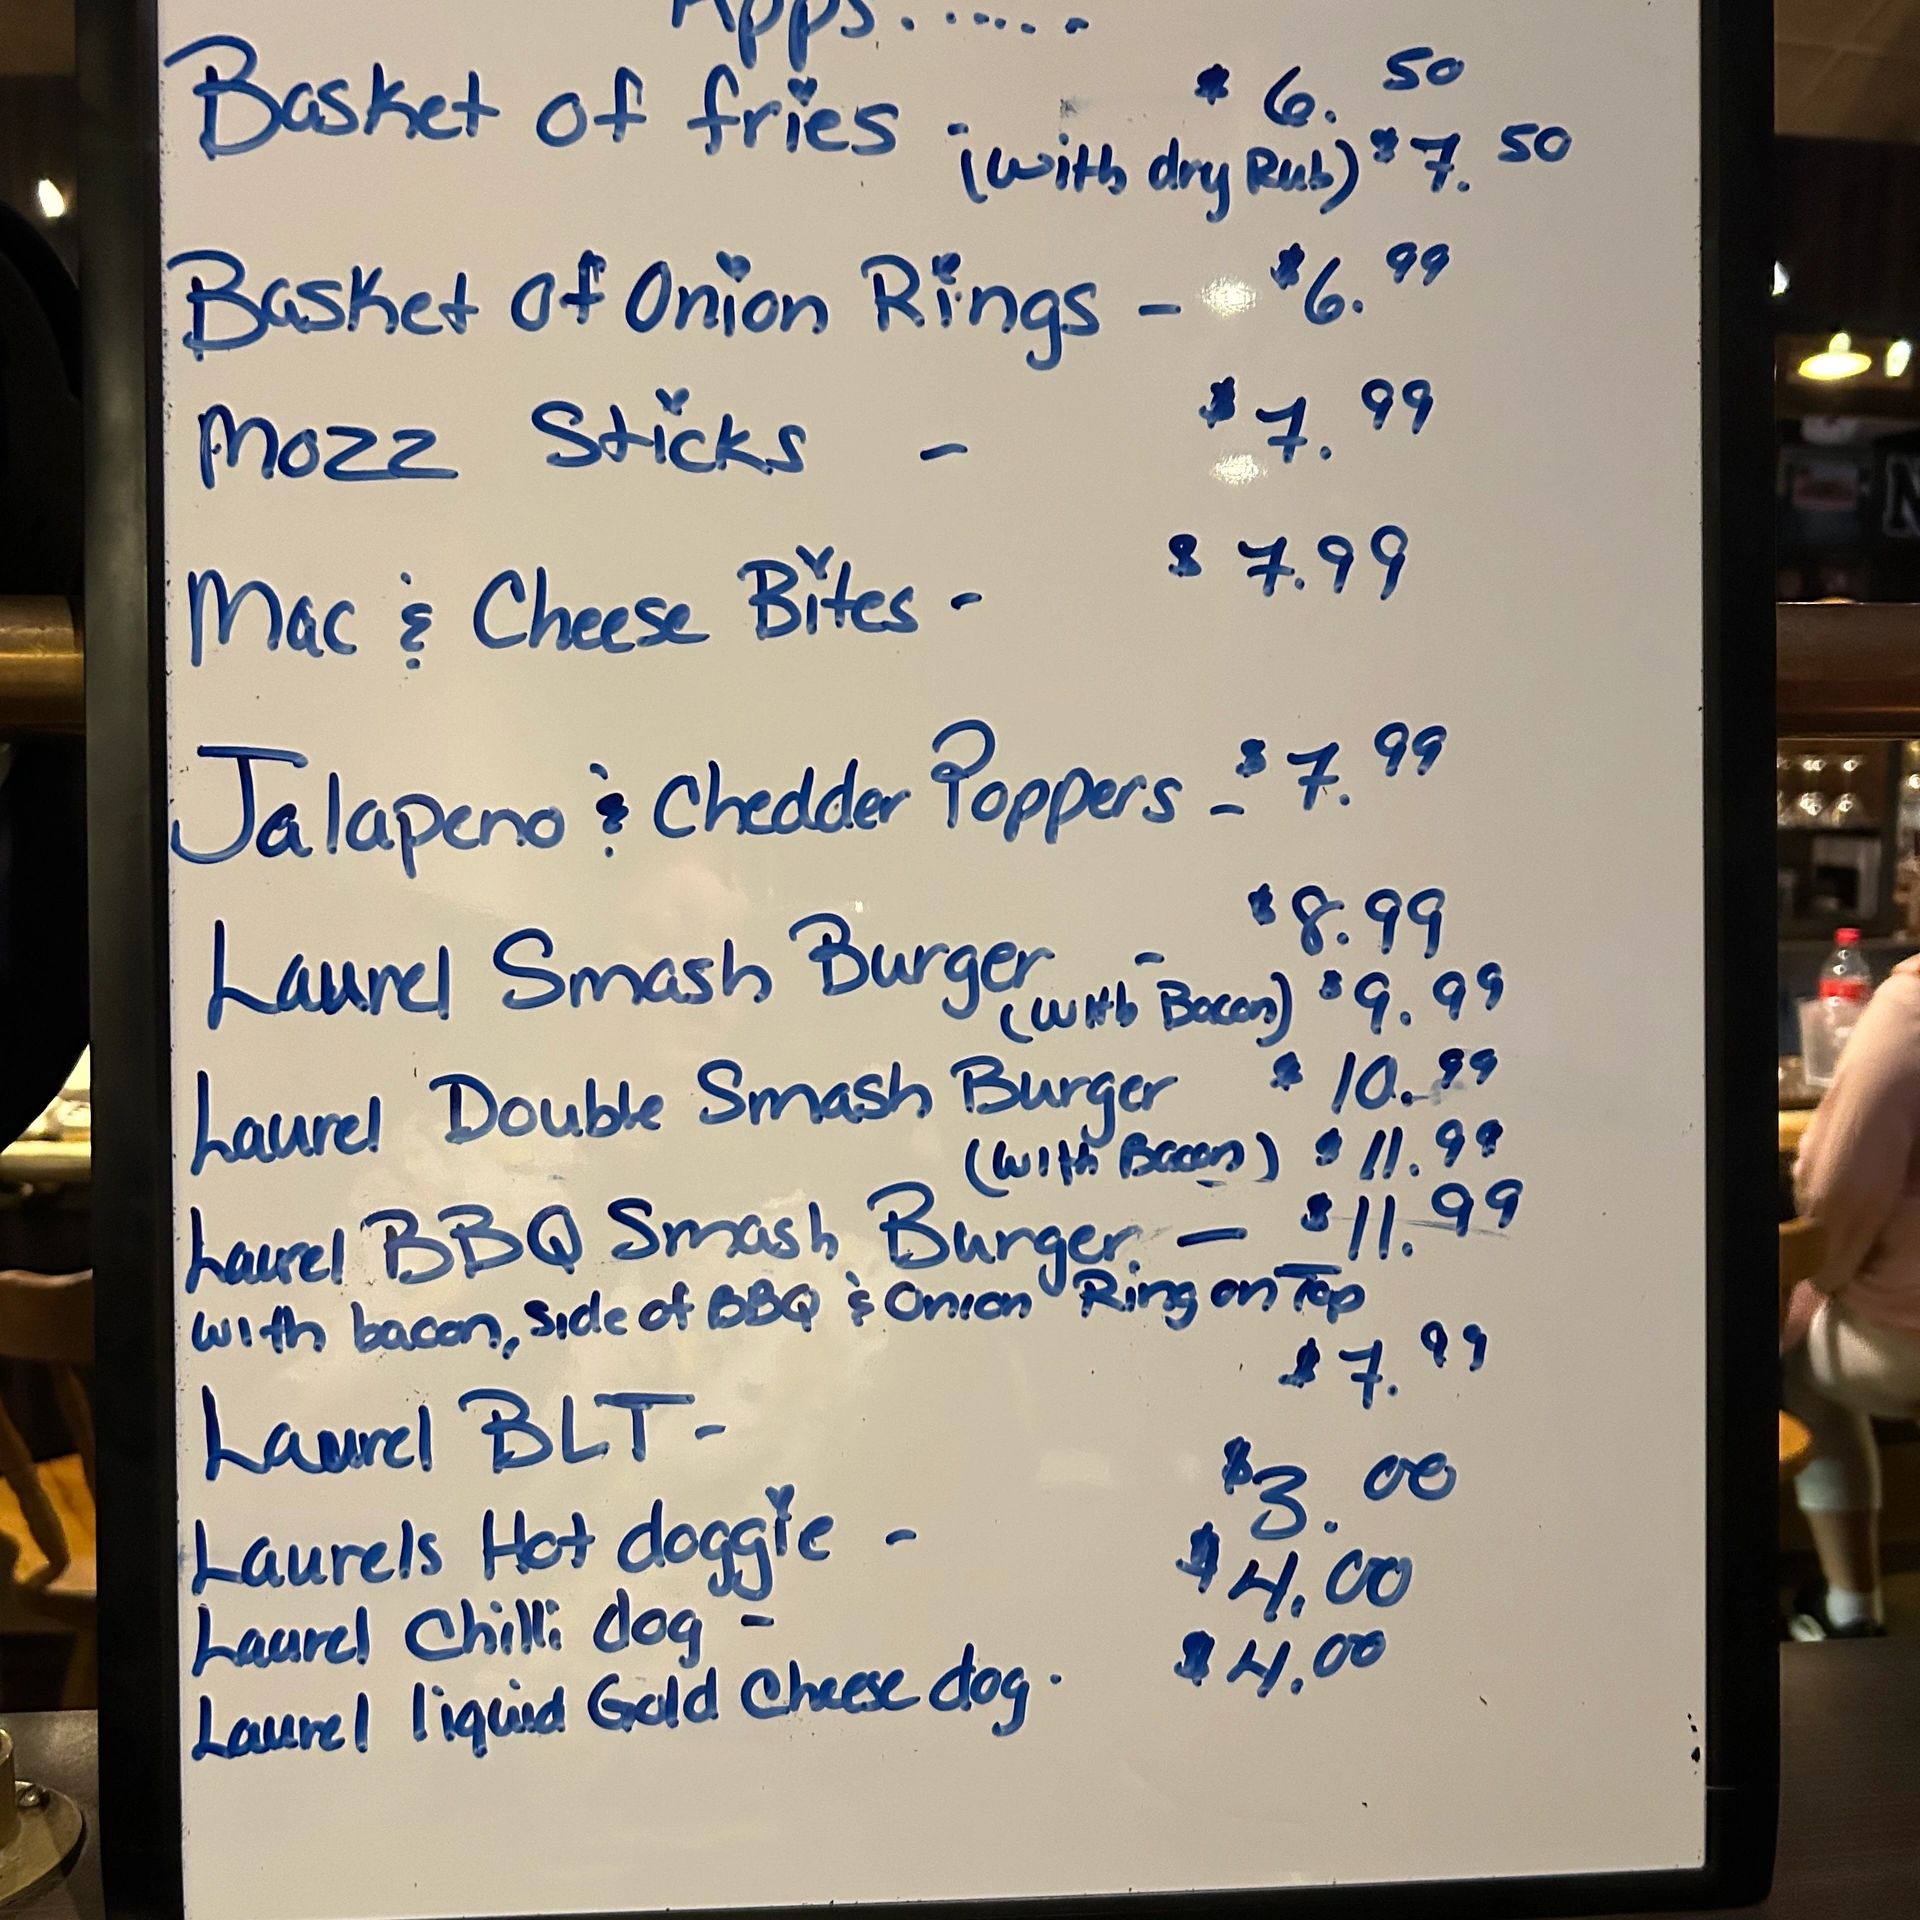 Apps......
Basket of fries - $6.50
(with dry Rub) $7.50
Basket of Onion Rings - $6.99
Mozz Sticks - $7.99
Mac & Cheese Bites - $7.99
Jalapeno & Chedder Poppers - $7.99
Laurel Smash Burger - $8.99
(with Bacon) $9.99
Laurel Double Smash Burger $10.99
(with Bacon) $11.99
Laurel BBQ Smash Burger - $11.99
with bacon, side of BBQ & Onion Ring on Top
Laurel BLT - $7.99
Laurels Hot doggie - $3.00
Laurel Chilli dog - $4.00
Laurel liquid Gold Cheese dog. $4.00